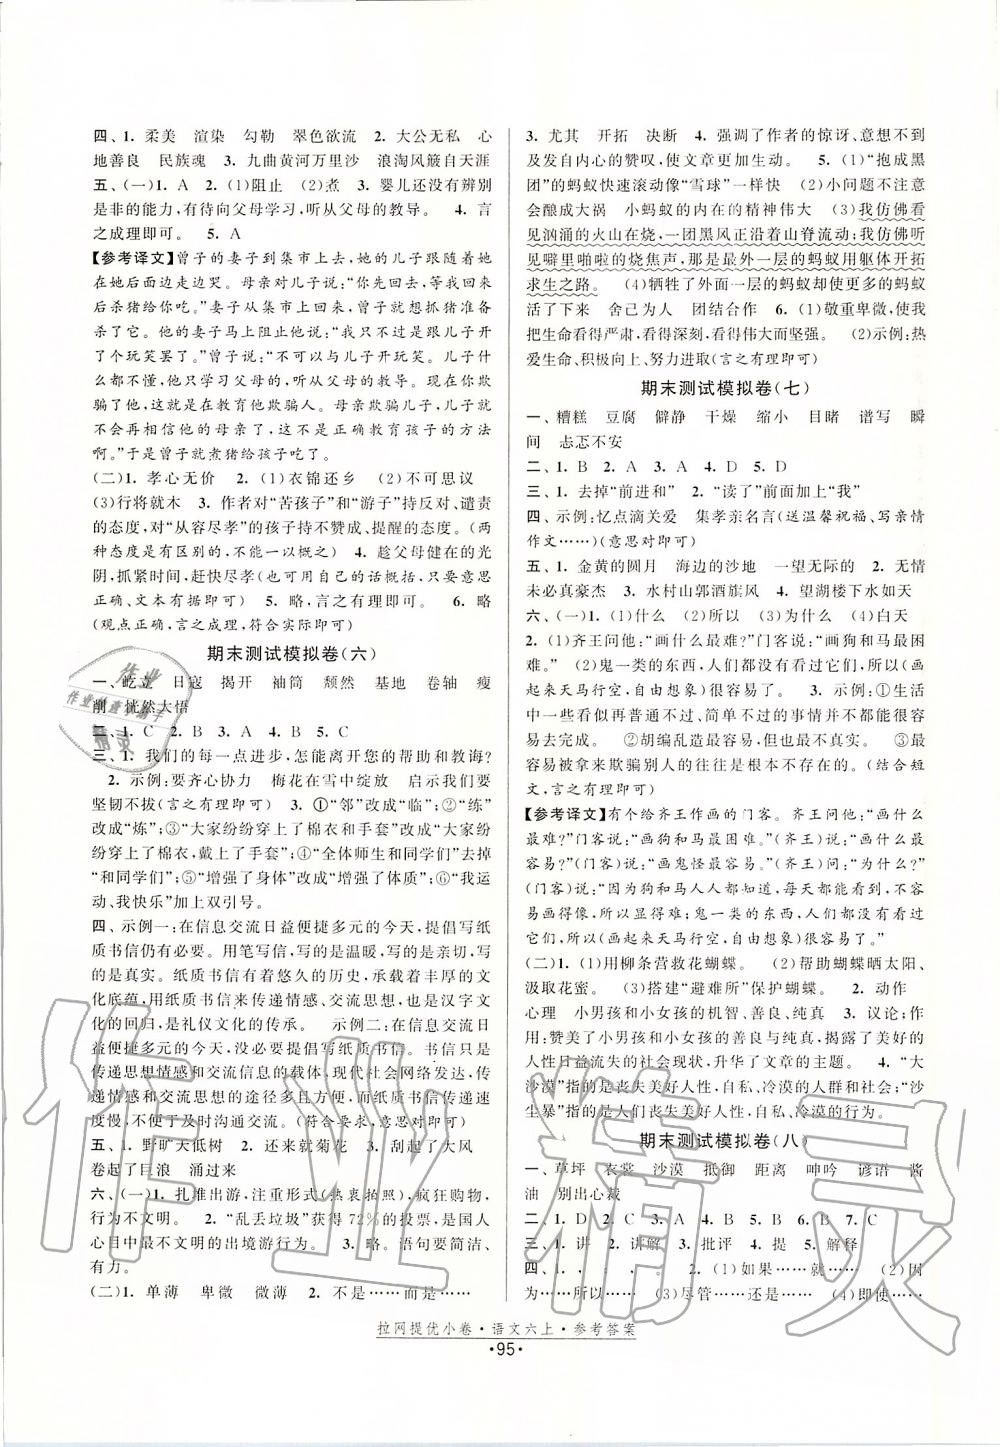 四、1. 柔美　渲染　勾勒　翠色欲流　2. 大公无私　心
地善良　民族魂　3. 九曲黄河万里沙　浪淘风簸自天涯
五、(一)1. A　2. (1)阻止　(2)煮　3. 婴儿还没有辨别
是非的能力,有待向父母学习,听从父母的教导。　4. 言
之成理即可。　5. A
【参考译文】曾子的妻子到集市上去,她的儿子跟随着她
在她后面边走边哭。母亲对儿子说:“你先回去,等我回来
后杀猪给你吃。”妻子从集市上回来,曾子就想抓猪准备
杀了它。他的妻子马上阻止他说:“我只不过是跟儿子开
了个玩笑罢了。”曾子说:“不可以与儿子开玩笑。儿子什
么都不懂,他只学习父母的,听从父母的教导。现在你欺
骗他,就是在教育他欺骗人。母亲欺骗儿子,儿子就不会
再相信他的母亲了,这不是正确教育孩子的方法
啊。”于是曾子就煮猪给孩子吃了。
(二)1. 孝心无价　2. (1)衣锦还乡　(2)不可思议
(3)行将就木　3. 作者对“苦孩子”和“游子”持反对、谴责
的态度,对“从容尽孝”的孩子持不赞成、提醒的态度。(两
种态度是有区别的,不能一以概之)　4. 趁父母健在的光
阴,抓紧时间,赶快尽孝(也可用自己的话概括,只要意思
正确、文本有据即可)　5. 略,言之有理即可。　6. 略
(观点正确,言之成理,符合实际即可)
期末测试模拟卷(六)
一、屹立　日寇　揭开　袖筒　颓然　基地　卷轴　瘦
削　恍然大悟
二、1. C　2. B　3. A　4. B　5. C
三、1. 我们的每一点进步,怎能离开您的帮助和教诲?
2. 示例:要齐心协力　梅花在雪中绽放　启示我们要
坚韧不拔(言之有理即可)　3. ①“邻”改成“临”;②“练”
改成“炼”;③“大家纷纷穿上了棉衣和手套”改成“大家纷
纷穿上了棉衣,戴上了手套”;④“全体师生和同学们”去掉
“和同学们”;⑤“增强了身体”改成“增强了体质”;⑥“我运
动,我快乐”加上双引号。
四、示例一:在信息交流日益便捷多元的今天,提倡写纸
质书信仍有必要。用笔写信,写的是温暖,写的是亲切,写
的是真实。纸质书信有着悠久的历史,承载着丰厚的文
化底蕴,用纸质书信来传递情感,交流思想,也是汉字文
化的回归,是礼仪文化的传承。　示例二:在信息交流日
益便捷多元的今天,没必要提倡写纸质书信。书信只是
传递思想情感的载体,现代社会网络发达,
传递情感和交流思想的途径多且方便,而纸质书信传递速
度慢,不适于及时沟通交流。(符合要求,意思对即可)
五、1. 野旷天低树　2. 还来就菊花　3. 刮起了大风
卷起了巨浪　涌过来
六、(一)1. 扎堆出游,注重形式(热衷拍照),疯狂购物,
行为不文明。　2. “乱丢垃圾”获得72%的投票,是国人
心目中最不文明的出境游行为。　3. 略。语句要简洁、
有力。
(二)1. 单薄　卑微　微薄　2. 不是……而是……
3. 尤其　开拓　决断　4. 强调了作者的惊讶、意想不到
及发自内心的赞叹,使文章更加生动。　5. (1)“抱成黑
团”的蚂蚁快速滚动像“雪球”一样快　(2)小问题不注意
会酿成大祸　小蚂蚁的内在的精神伟大　(3)我仿佛看
见汹涌的火山在烧,一团黑风正沿着山脊流动;我仿佛听
见噼里啪啦的烧焦声,那是最外一层的蚂蚁用躯体开拓
求生之路。　(4)牺牲了外面一层的蚂蚁却使更多的蚂蚁
活了下来　舍己为人　团结合作　6. (1)敬重卑微,使我
把生命看得严肃,看得深刻,看得伟大而坚强。　(2)示例:热
爱生命,积极向上,努力进取(言之有理即可)
期末测试模拟卷(七)
一、糟糕　豆腐　僻静　干燥　缩小　目睹　谱写　瞬
间　忐忑不安
二、1. B　2. A　3. A　4. D　5. D
三、1. 去掉“前进和”　2. “读了”前面加上“我”
四、示例:忆点滴关爱　集孝亲名言(送温馨祝福、写亲情
作文……)(意思对即可)
五、1. 金黄的圆月　海边的沙地　一望无际的　2. 无情
未必真豪杰　3. 水村山郭酒旗风　4. 望湖楼下水如天
六、(一)1. (1)什么　(2)所以　(3)为什么　(4)白天
2. (1)齐王问他:“画什么最难?”门客说:“画狗和马最困
难。”　(2)鬼一类的东西,人们都没有见过,所以(画
起来天马行空,自由想象)很容易。　3. 示例:①生活
中一些再普通不过、简单不过的事情并不那么容易
去完成。　②胡编乱造最容易,但是最没用。　③最
容易被拿来欺骗别人的往往是根本不存在的。(结合短
文,言之有理即可)
【参考译文】有个给齐王作画的门客。齐王问他:“画什么
最难?”门客说:“画狗和马最困难。”(齐王)说:“画什么最
容易?”(门客)说:“画鬼怪最容易。”(齐王)问:“为什么?”
(门客)说:“因为狗和马人人都知道,每天都能看到,不
容易画得像,所以显得难;鬼一类的东西,人们都没有见
过,所以(画起来天马行空,自由想象)很容易。”
(二)1. (1)用柳条营救花蝴蝶。　(2)帮助蝴蝶晒太阳、
汲取花蜜。　(3)搭建“避难所”保护蝴蝶。　2. 动作
心理　小男孩和小女孩的机智、善良、纯真　3. 议论;作
用:赞美了小男孩和小女孩的善良与纯真,揭露了美好的
人性日益流失的社会现状,升华了文章的主题。　4. “大
沙漠”指的是丧失美好人性,自私、冷漠的人群和社会;“沙
尘暴”指的是人们丧失美好人性,自私、冷漠的行为。
期末测试模拟卷(八)
一、草坪　衣裳　沙漠　抵御　距离　呻吟　谚语　酱
油　别出心裁
二、1. D　2. C　3. A　4. B　5. B　6. B　7. C
三、1. 讲　2. 讲解　3. 批评　4. 提　5. 解释
四、1. , : , 。　2. (1)如果……就……　(2)因
为……所以……　(3)尽管……还是……　(4)即使……
拉网提优小卷·语文六上·参考答案
·95·
作业精灵